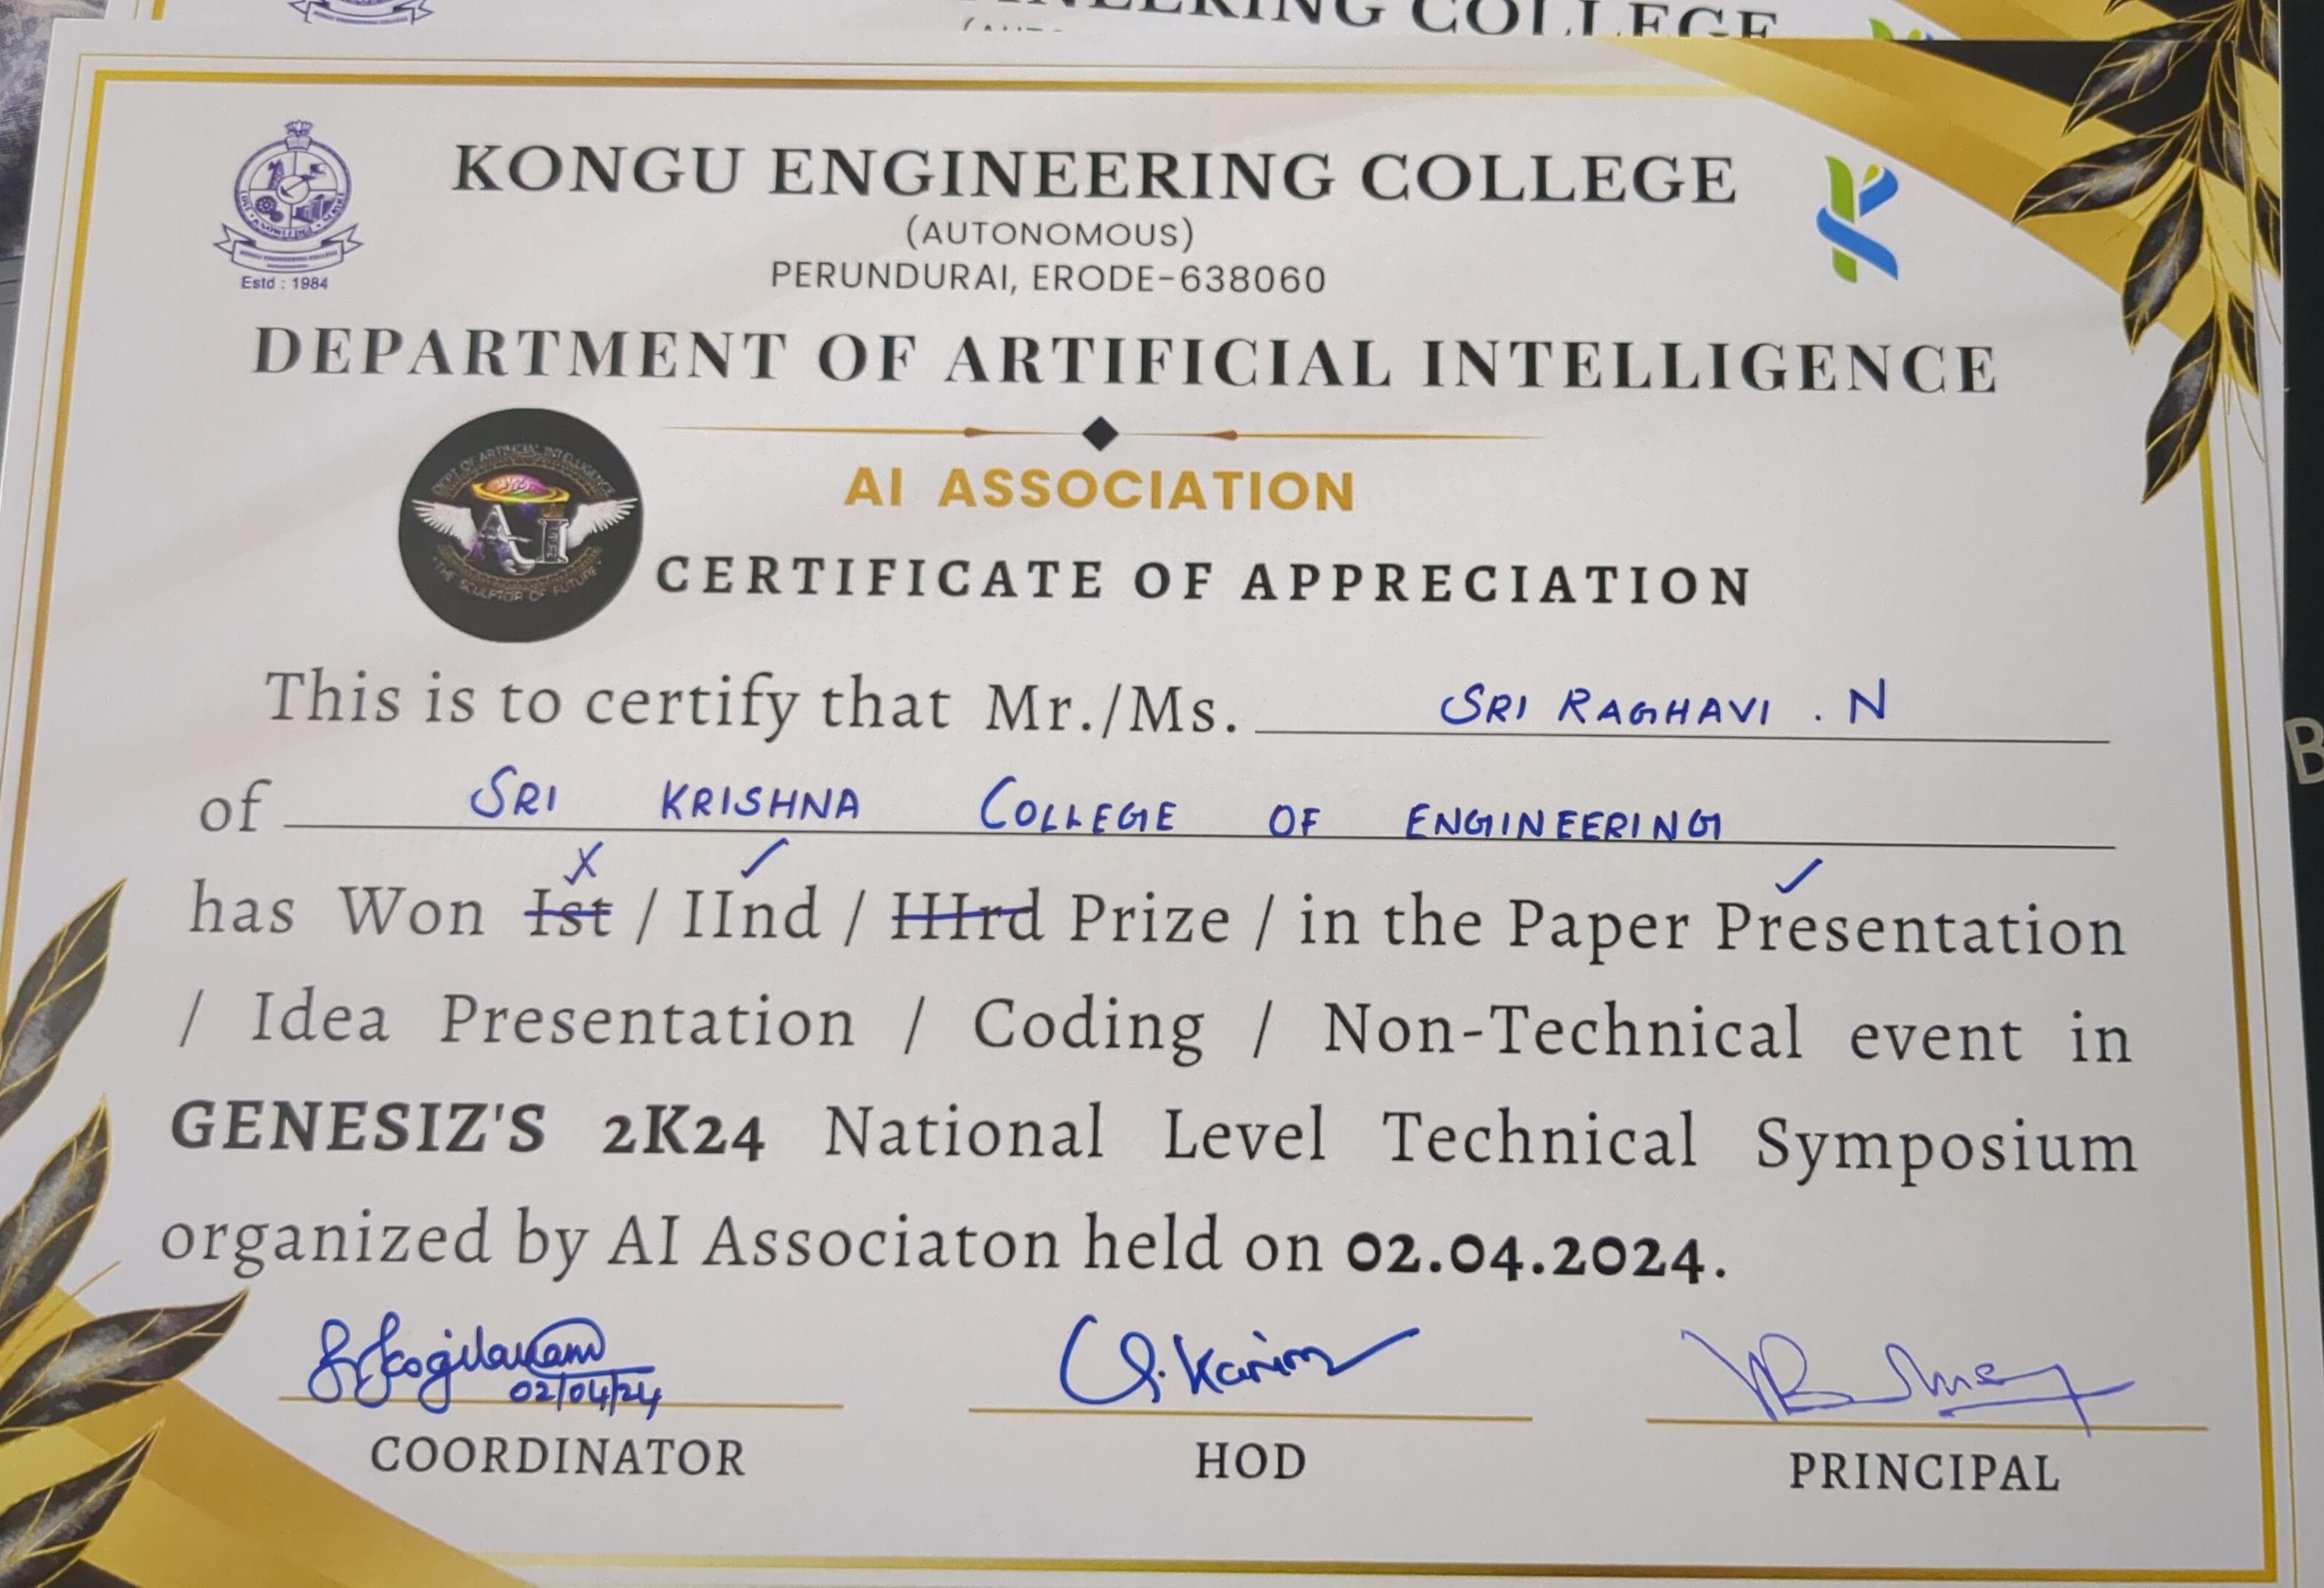 NEERING COLLEGE
KONGU ENGINEERING COLLEGE
(AUTONOMOUS)
PERUNDURAI, ERODE-638060
Estd : 1984
DEPARTMENT OF ARTIFICIAL INTELLIGENCE
DEPT OF ARTIFICIAL INTELLIGENCE
AI
THE SCULPTOR OF FUTURE
AI ASSOCIATION
CERTIFICATE OF APPRECIATION
This is to certify that Mr./Ms. SRI RAGHAVI . N
of SRI KRISHNA COLLEGE OF ENGINEERING
has Won Ist / IInd / IIIrd Prize / in the Paper Presentation
/ Idea Presentation / Coding / Non-Technical event in
GENESIZ'S 2K24 National Level Technical Symposium
organized by AI Associaton held on 02.04.2024.
02/04/24
COORDINATOR HOD PRINCIPAL